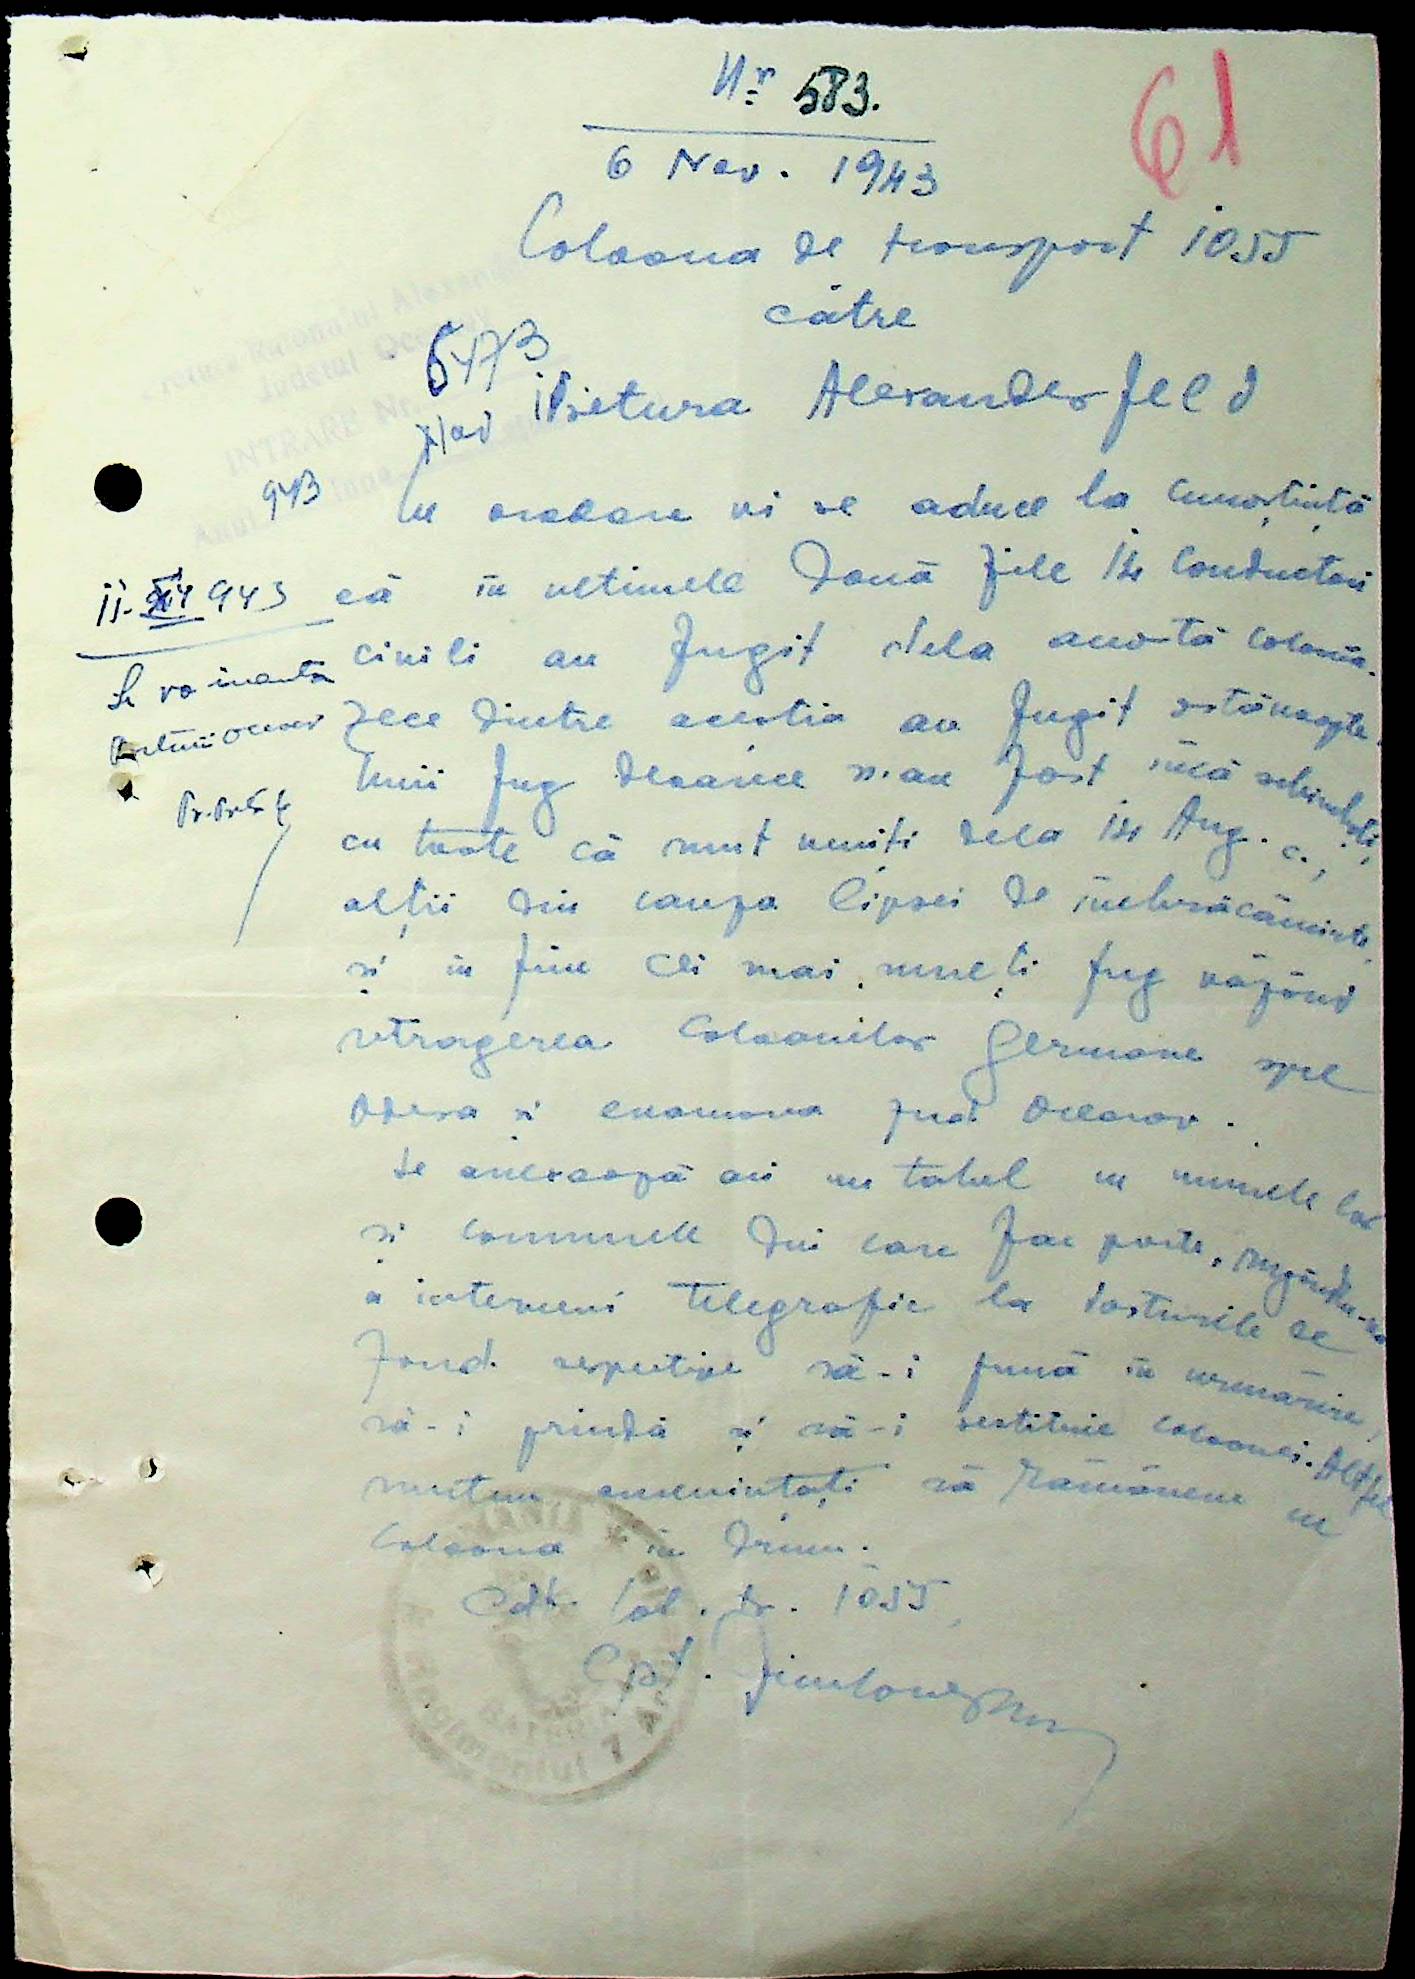 Nr 583.
61
6 Nov. 1943
Coloana de transport 1055
către
Pretura Alexanderfeld
Pretura Raionului Alexander
Judetul Oceacov
INTRARE Nr. 5473
Anul 943 luna Nov
Cu onoare vi se aduce la cunoștință
că în ultimele două zile 14 conductori
civili au fugit dela aceastā coloană.
Zece dintre acestia au fugit astănoapte.
Unii fug deoarece n-au fost încă schimbați,
cu toate că sunt veniți dela 14 Aug. c.,
alții din cauza lipsei de îmbrăcăminte
și în fine cei mai mulți fug văzând
retragerea Coloanelor Germane spre
Odesa și comuna jud. Oceacov.
Se anexează aci un tabel cu numele lor
și comunele din care fac parte, rugându-vă
a interveni telegrafic la posturile de
Jand. respective să-i pună în urmărire,
să-i prindă și să-i restituie coloanei. Altfel
suntem amenințați să rămânem cu
Coloana în drum.
Cdt. Col. tr. 1055
Cpt.
11-XI 943
Se va înainta
Preturii Oceacov
Pr. Pretor
ROMANIA
BATERIA
Regimentul 7 Art